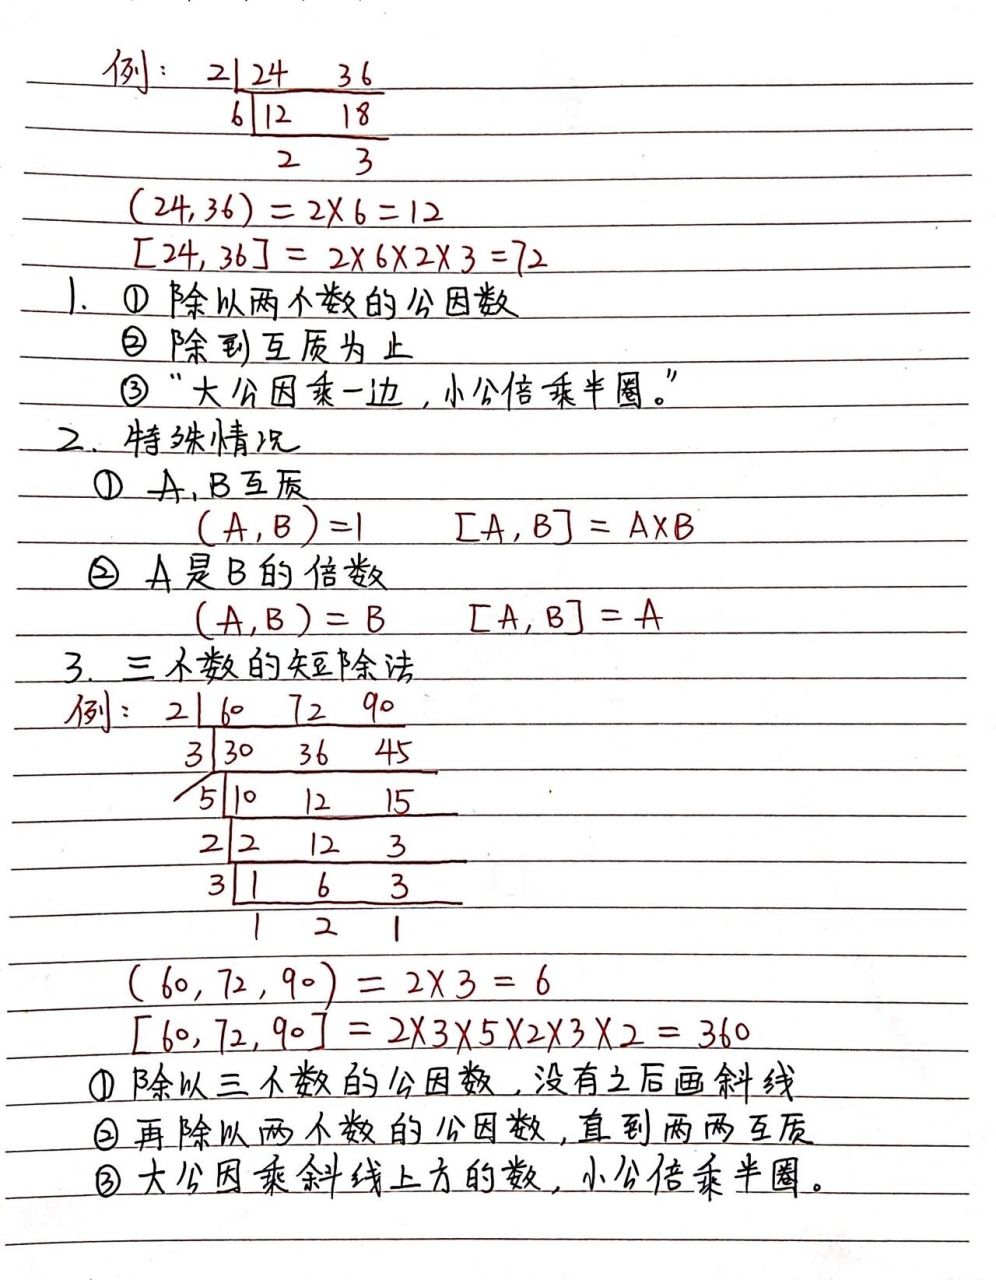 例： 2 24 36
6 12 18
2 3
(24,36) = 2×6 = 12
[24,36] = 2×6×2×3 = 72
1. ① 除以两个数的公因数
② 除到互质为止
③ “大公因乘一边，小公倍乘半圈。”
2. 特殊情况
① A、B互质
(A,B)=1 [A,B] = A×B
② A是B的倍数
(A,B) = B [A,B] = A
3. 三个数的短除法
例： 2 60 72 90
3 30 36 45
5 10 12 15
2 2 12 3
3 1 6 3
1 2 1
(60,72,90) = 2×3 = 6
[60,72,90] = 2×3×5×2×3×2 = 360
① 除以三个数的公因数，没有之后画斜线
② 再除以两个数的公因数，直到两两互质
③ 大公因乘斜线上方的数，小公倍乘半圈。